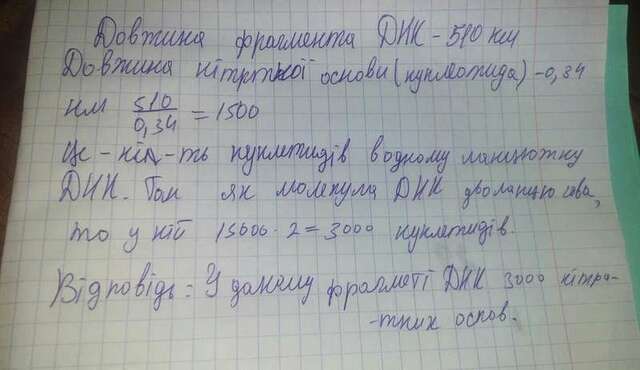 Довжина фрагмента ДНК - 510 нм
Довжина нітратної основи (нуклеотида) - 0,34
нм 510/0,34 = 1500
Це - кіл-ть нуклетидів в одному ланцюжку
ДНК. Так як молекула ДНК дволанцюгова,
то у ній 15000 · 2 = 3000 нуклетидів.
Відповідь: У даному фрагметі ДНК 3000 нітра-
-тних основ.